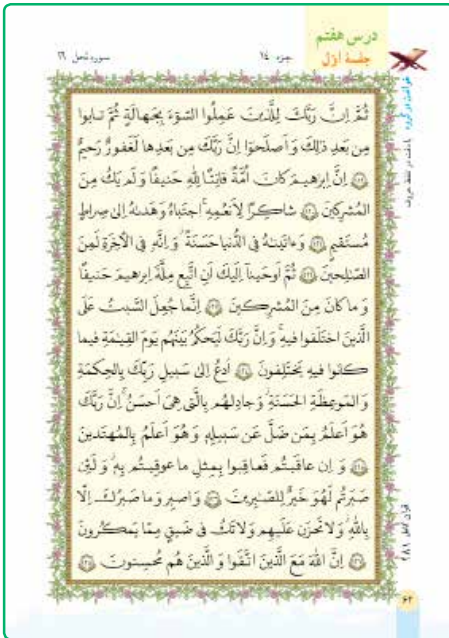 درس هفتم
جلسهٔ اوّل
جزء ۱٤
سوره نحل ۱٦
ثُمَّ اِنَّ رَبَّكَ لِلَّذینَ عَمِلُوا السّوءَ بِجَهالَةٍ ثُمَّ تابوا
مِن بَعدِ ذٰلِكَ وَ اَصلَحوا اِنَّ رَبَّكَ مِن بَعدِها لَغَفورٌ رَحیمٌ
اِنَّ اِبرٰهیمَ كانَ اُمَّةً قانِتًا لِلّٰهِ حَنیفًا وَ لَم یَكُ مِنَ
المُشرِكینَ شاكِرًا لِاَنعُمِهِ اجتَباهُ وَ هَدىٰهُ اِلىٰ صِراطٍ
مُستَقیمٍ وَ ءاتَینٰهُ فِی الدُّنیا حَسَنَةً وَ اِنَّهُ فِی الآخِرَةِ لَمِنَ
الصّٰلِحینَ ثُمَّ اَوحَینا اِلَیكَ اَنِ اتَّبِع مِلَّةَ اِبرٰهیمَ حَنیفًا
وَ ما كانَ مِنَ المُشرِكینَ اِنَّما جُعِلَ السَّبتُ عَلَى
الَّذینَ اختَلَفوا فیهِ وَ اِنَّ رَبَّكَ لَیَحكُمُ بَینَهُم یَومَ القِیٰمَةِ فیما
كانوا فیهِ یَختَلِفونَ اُدعُ اِلىٰ سَبیلِ رَبِّكَ بِالحِكمَةِ
وَ المَوعِظَةِ الحَسَنَةِ وَ جادِلهُم بِالَّتی هِیَ اَحسَنُ اِنَّ رَبَّكَ
هُوَ اَعلَمُ بِمَن ضَلَّ عَن سَبیلِهِ وَ هُوَ اَعلَمُ بِالمُهتَدینَ
وَ اِن عاقَبتُم فَعاقِبوا بِمِثلِ ما عوقِبتُم بِهِ وَ لَئِن
صَبَرتُم لَهُوَ خَیرٌ لِلصّٰبِرینَ وَ اصبِر وَ ما صَبرُكَ اِلّا
بِاللّٰهِ وَ لا تَحزَن عَلَیهِم وَ لا تَكُ فی ضَیقٍ مِمّا یَمكُرونَ
اِنَّ اللّٰهَ مَعَ الَّذینَ اتَّقَوا وَ الَّذینَ هُم مُحسِنونَ
۶۲